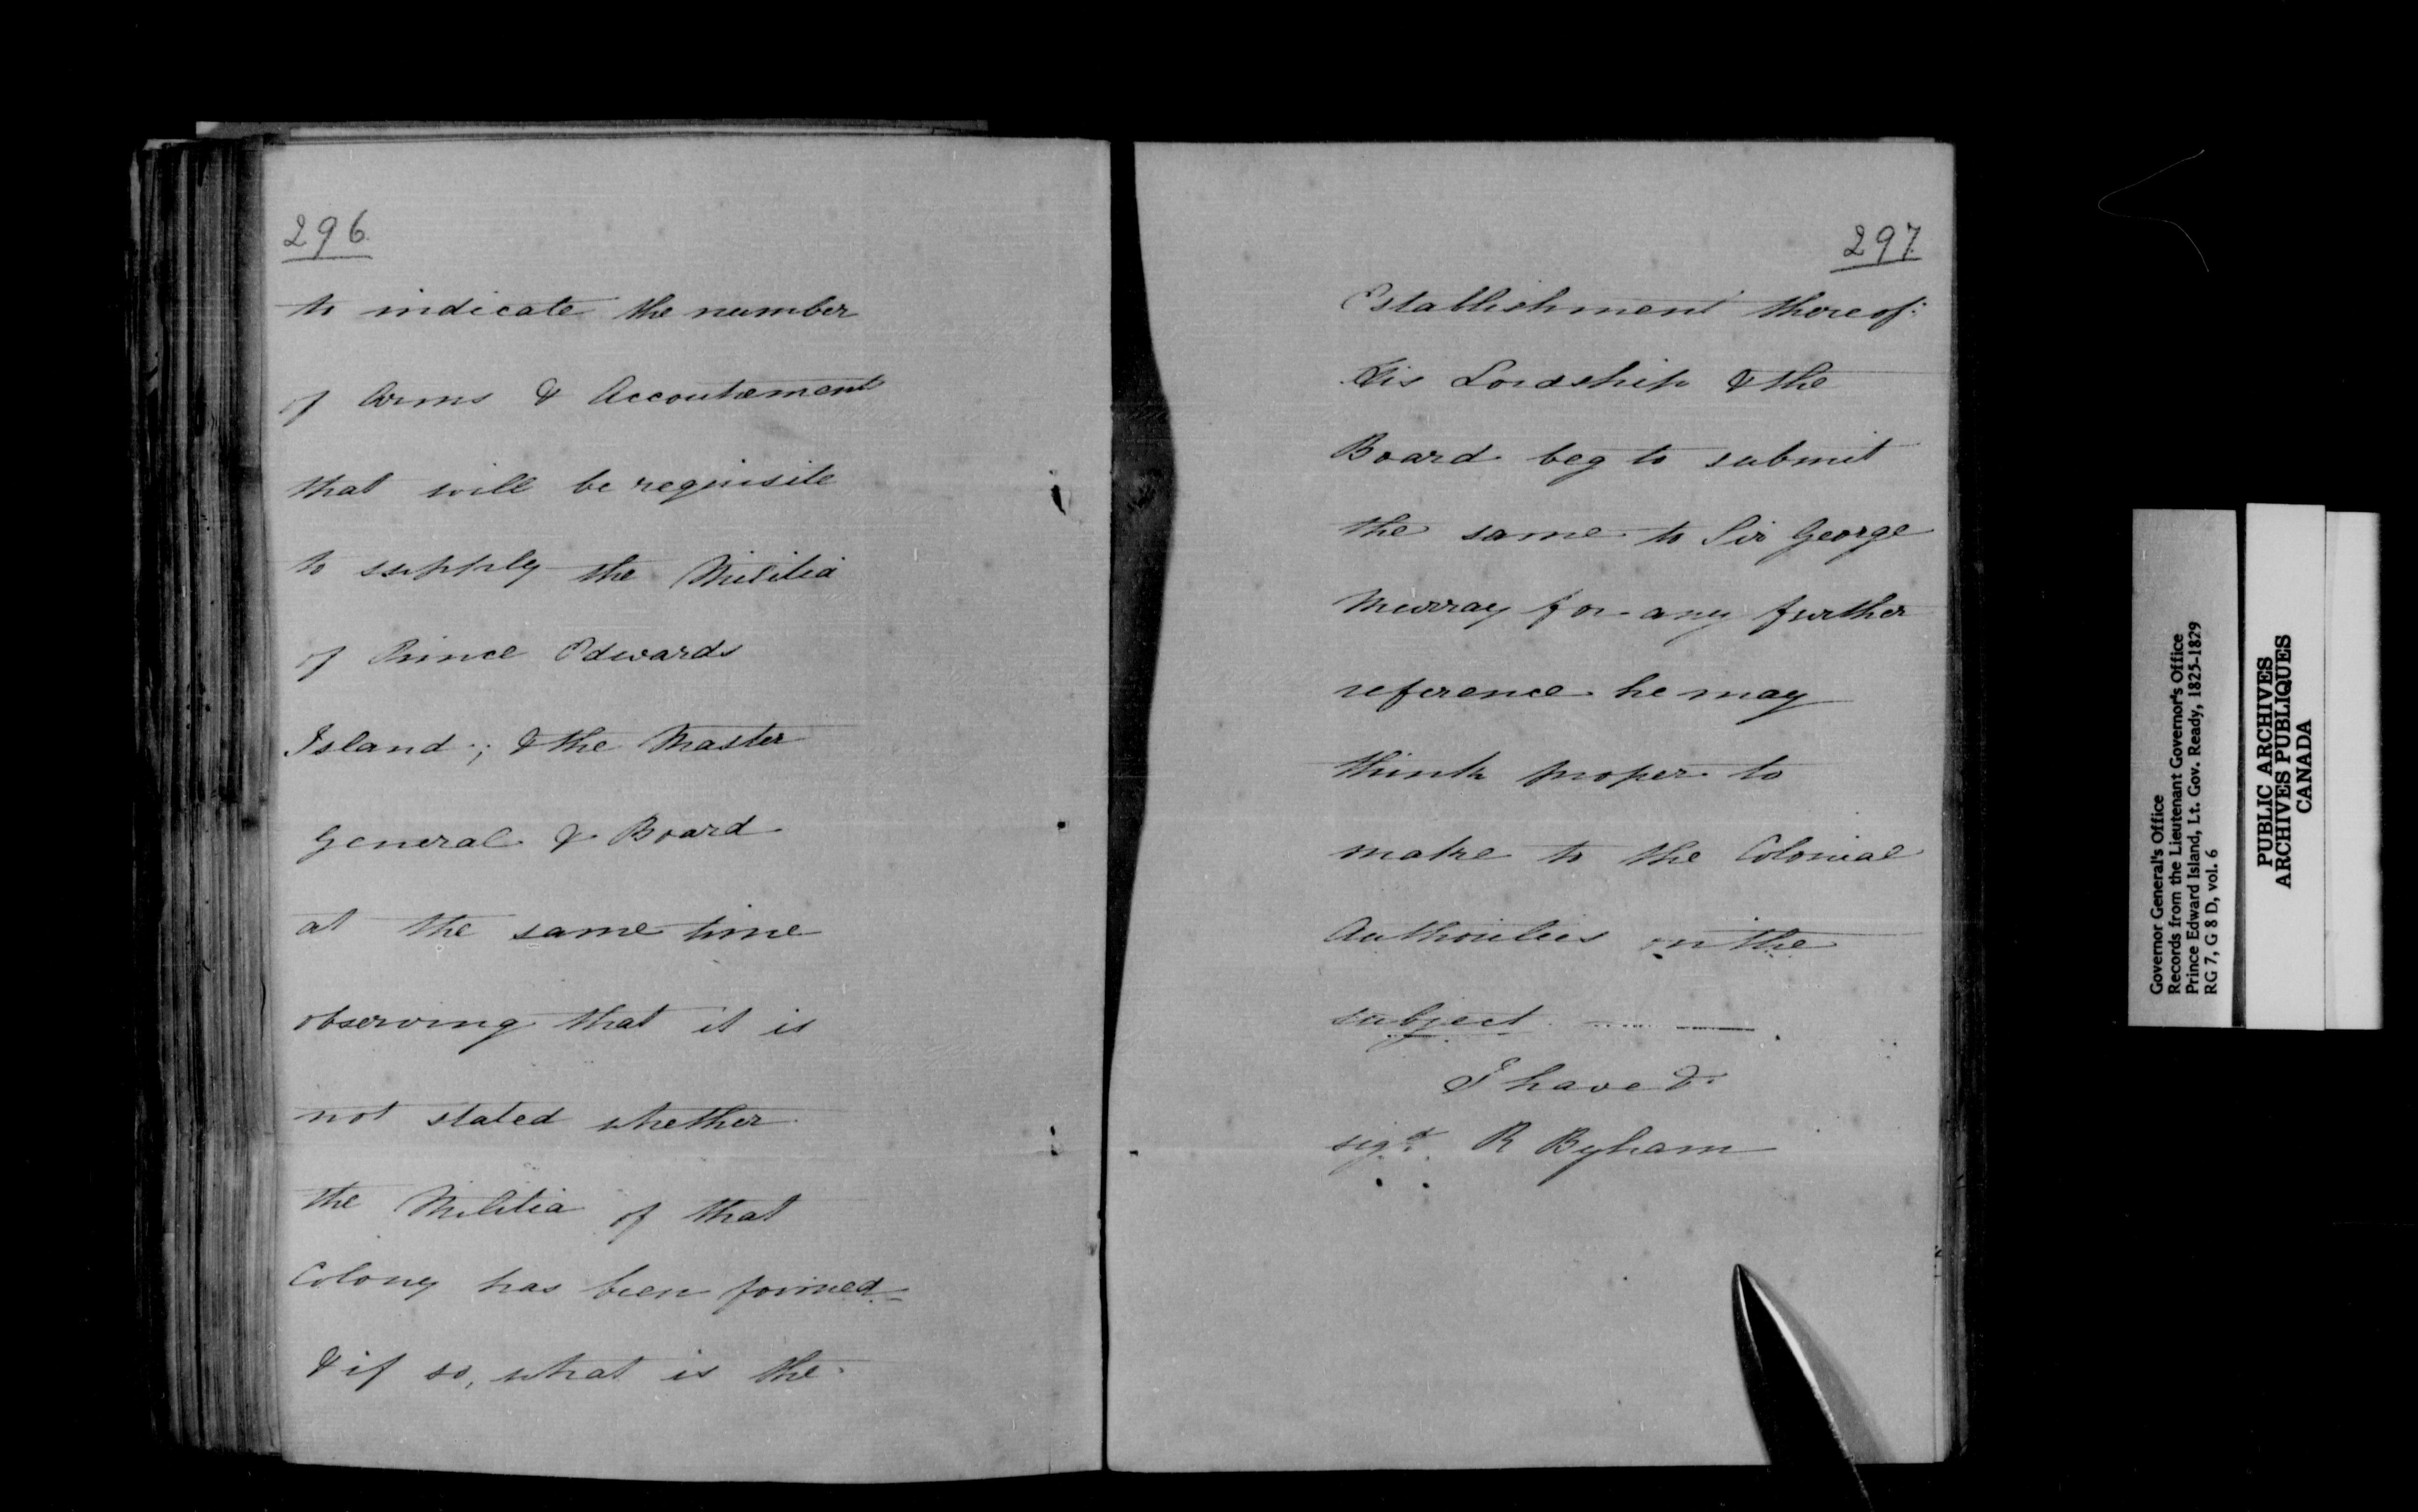 296.
to indicate the number
of Arms & Accoutrements
that will be requisite
to supply the Militia
of Prince Edwards
Island; & the Master
General & Board
at the same time
observing that it is
not stated whether
the Militia of that
Colony has been formed
& if so, what is the
297.
Establishment thereof:
His Lordship & the
Board beg to submit
the same to Sir George
Murray for any further
reference he may
think proper to
make to the Colonial
Authorities on the
subject.
I have &
sigd. R Byham
Governor General's Office
Records from the Lieutenant Governor's Office
Prince Edward Island, Lt. Gov. Ready, 1825-1829
RG 7, G 8 D, vol. 6
PUBLIC ARCHIVES
ARCHIVES PUBLIQUES
CANADA